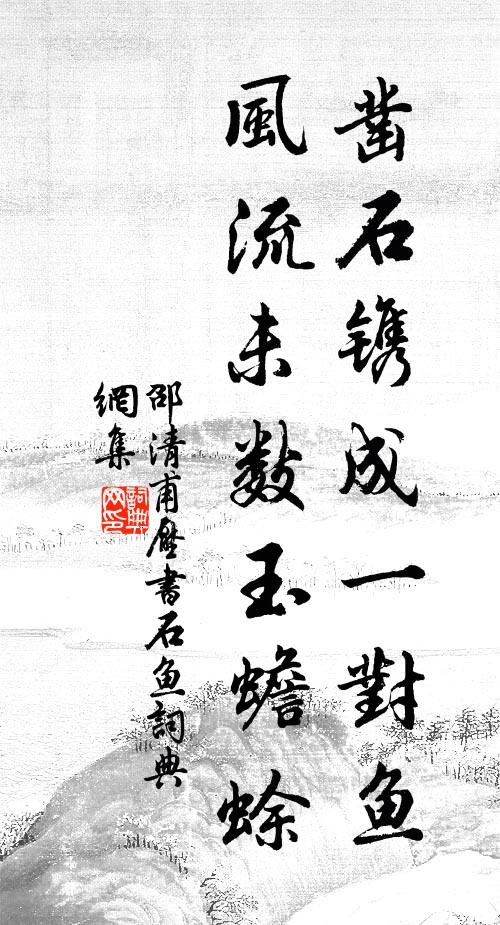 凿石镌成一對鱼
風流未数玉蟾蜍
邵清甫壓書石鱼詞典
網集
詞典
网印